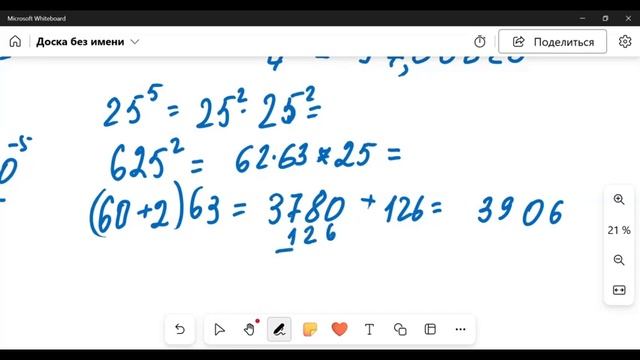 Microsoft Whiteboard
Доска без имени
Поделиться
25⁵ = 25² · 25² =
⁻⁵
625² = 62·63 * 25 =
(60+2)63 = 3780 + 126 = 3906
126
21 %